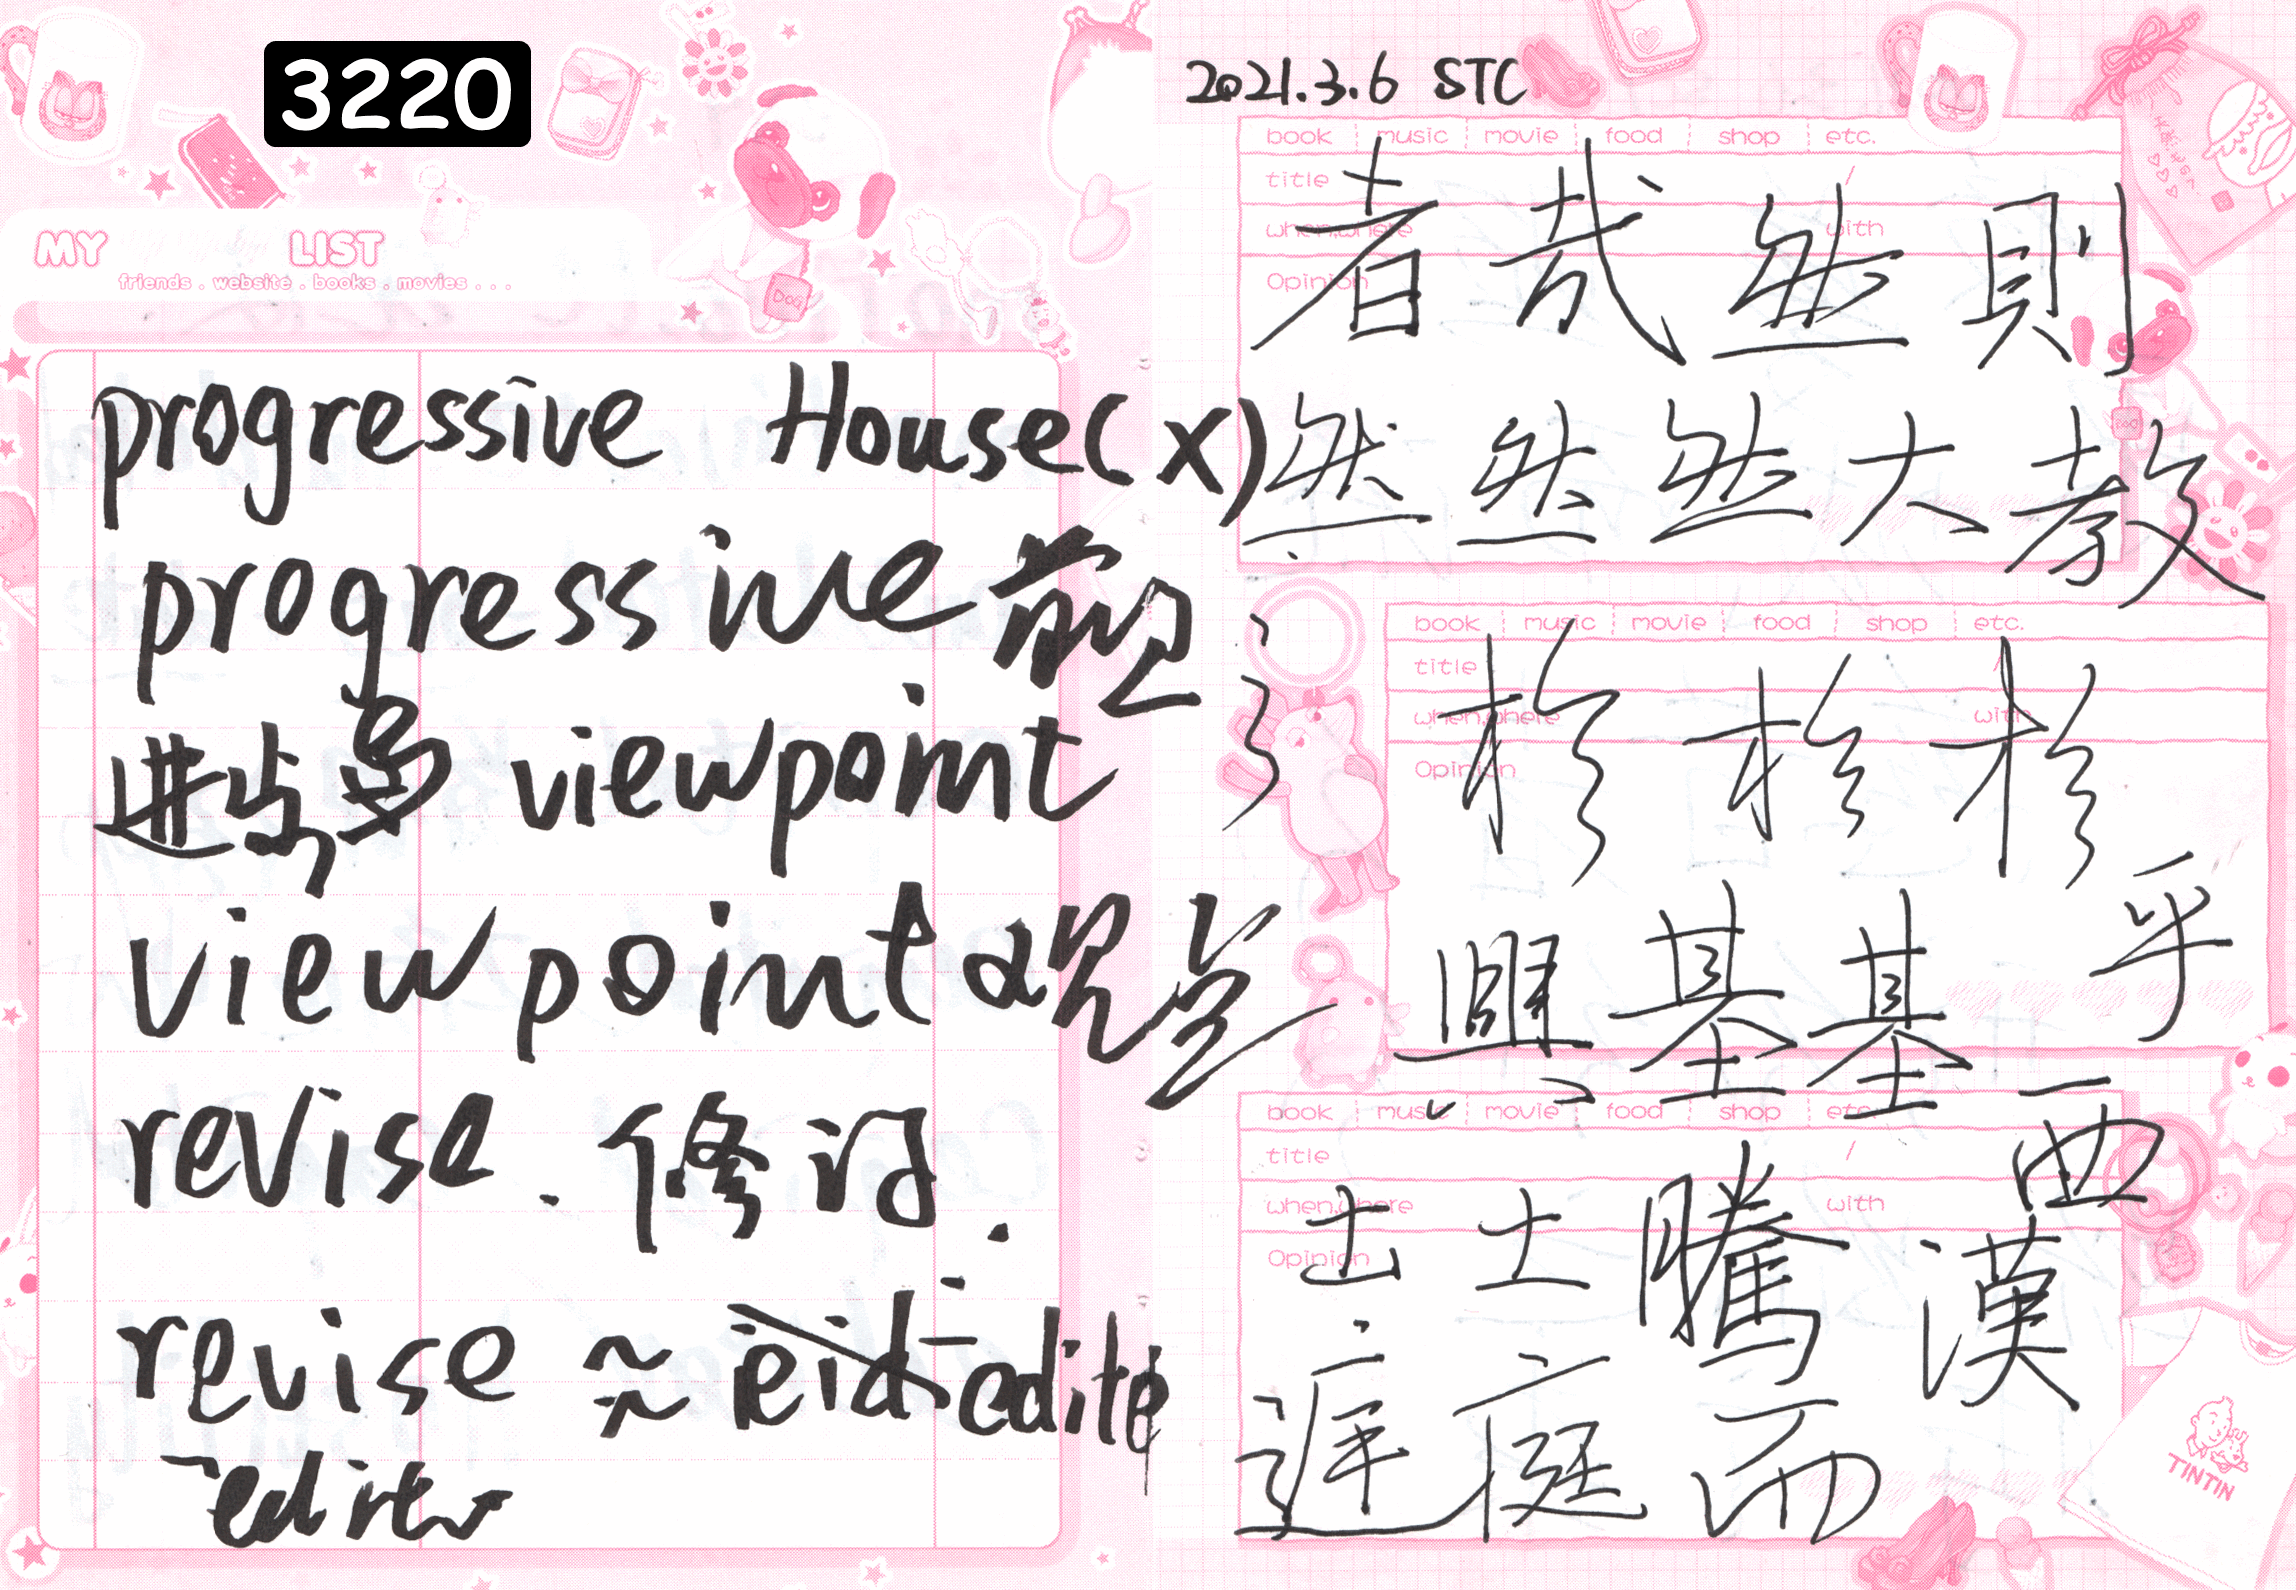 3220
MY LIST
friends . website . books . movies . . .
progressive House(x)
progressive 前卫
进步多 viewpoint
viewpoint 观点
revise . 修订 .
revise ≈ edite
editer
2021.3.6 STC
book music movie food shop etc.
title /
when,where with
Opinion
者 哉 然 則
然 然 然 大 教
book music movie food shop etc.
title /
when,where with
Opinion
於 於 於
興 基 基 乎
book music movie food shop etc.
title /
when,where with
Opinion
土 土 騰 漢 西
遲 庭 而
DOG
TINTIN